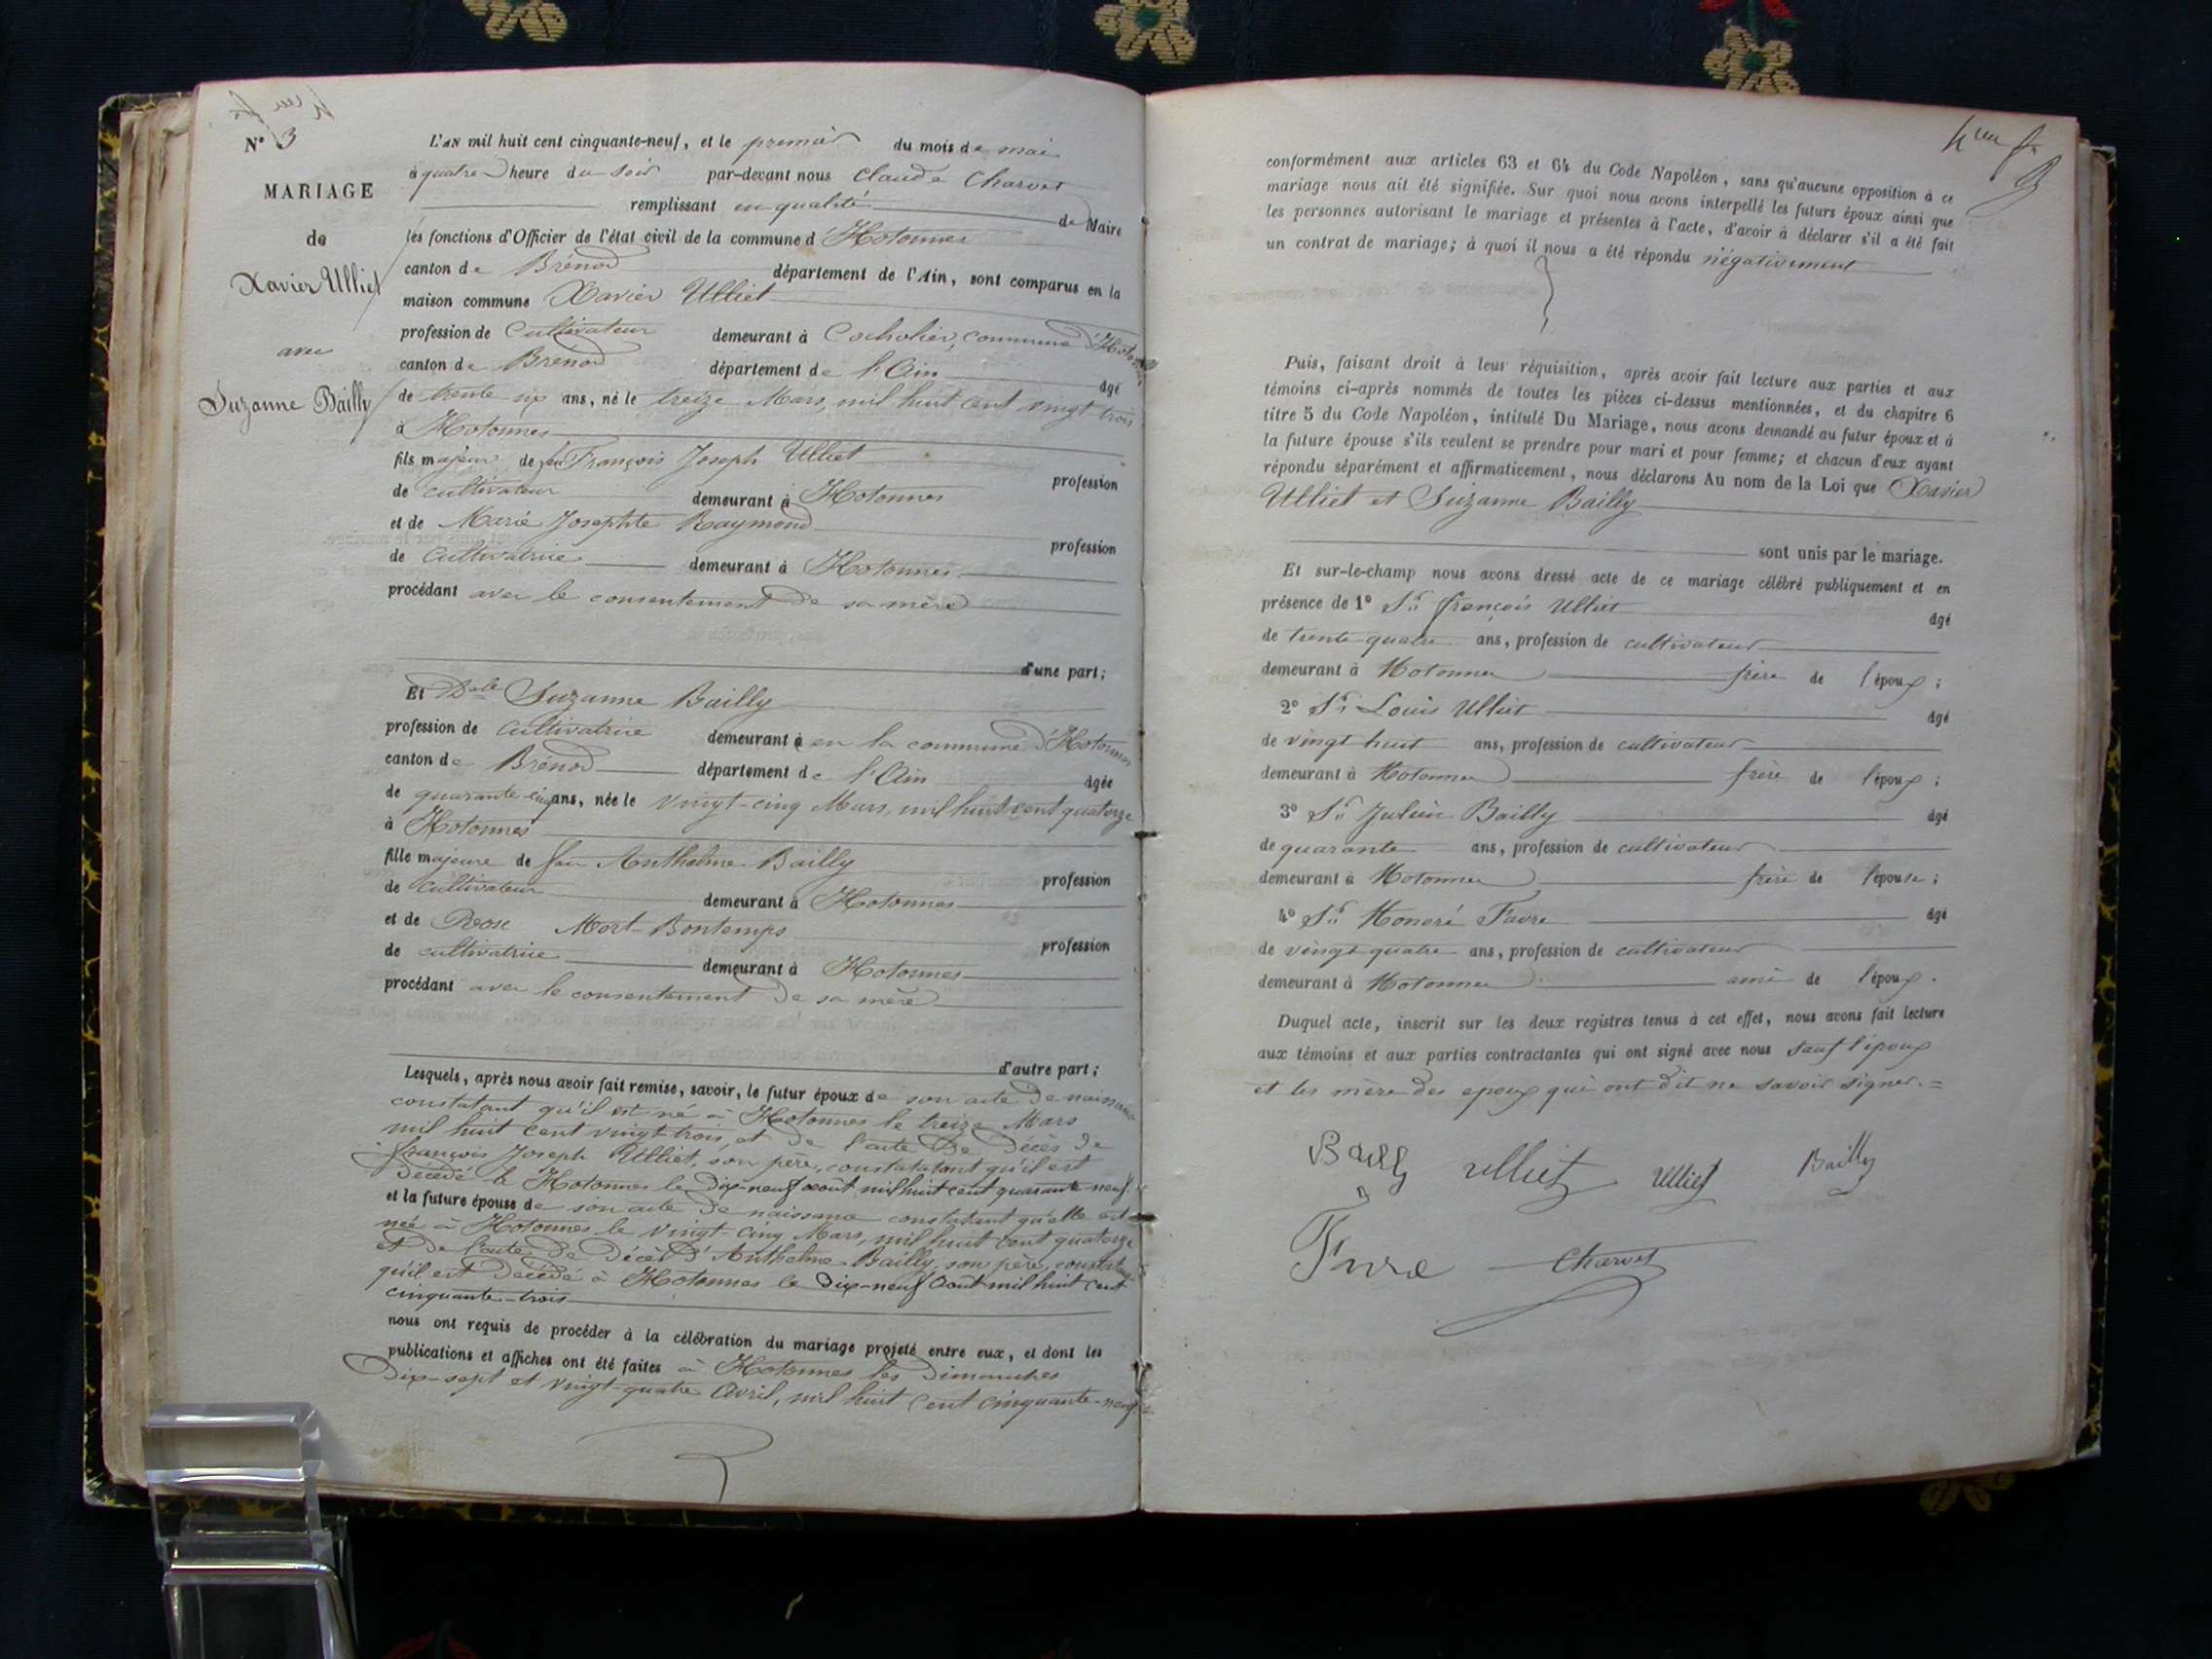 N° 3
MARIAGE
de
Xavier Ulliet
avec
Suzanne Bailly
L'AN mil huit cent cinquante-neuf, et le premier du mois de mai
à quatre heure du soir par-devant nous Claude Charvet
remplissant en qualité de Maire
les fonctions d'Officier de l'état civil de la commune d'Hotonnes
canton de Brénod département de l'Ain, sont comparus en la
maison commune Xavier Ulliet
profession de Cultivateur demeurant à commune d'Hotonnes
canton de Brénod département de l'Ain âgé
de trente six ans, né le treize Mars, mil huit cent vingt trois
à Hotonnes
fils majeur de feu François Joseph Ulliet profession
de cultivateur demeurant à Hotonnes
et de Marie Josephte Raymond profession
de Cultivatrice demeurant à Hotonnes
procédant avec le consentement de sa mère
d'une part;
Et Delle Suzanne Bailly
profession de cultivatrice demeurant à en la commune d'Hotonnes
canton de Brénod département de l'Ain âgée
de quarante-cinq ans, née le vingt-cinq Mars, mil huit cent quatorze
à Hotonnes
fille majeure de feu Anthelme Bailly profession
de cultivateur demeurant à Hotonnes
et de Rose Mort-Bontemps profession
de cultivatrice demeurant à Hotonnes
procédant avec le consentement de sa mère
d'autre part;
Lesquels, après nous avoir fait remise, savoir, le futur époux de son acte de naissance
constatant qu'il est né à Hotonnes le treize Mars
mil huit cent vingt trois, et de l'acte de décès de
François Joseph Ulliet, son père, constatatant qu'il est
décédé à Hotonnes le dix-neuf août mil huit cent quarante neuf.
et la future épouse de son acte de naissance constatant qu'elle est
née à Hotonnes le vingt-cinq Mars, mil huit cent quatorze
et de l'acte de décès d'Anthelme Bailly, son père, constatant
qu'il est décédé à Hotonnes le dix-neuf Août mil huit cent
cinquante-trois
nous ont requis de procéder à la célébration du mariage projeté entre eux, et dont les
publications et affiches ont été faites à Hotonnes les Dimanches
Dix-sept et vingt-quatre Avril, mil huit cent cinquante-neuf
conformément aux articles 63 et 64 du Code Napoléon, sans qu'aucune opposition à ce
mariage nous ait été signifiée. Sur quoi nous avons interpellé les futurs époux ainsi que
les personnes autorisant le mariage et présentes à l'acte, d'avoir à déclarer s'il a été fait
un contrat de mariage; à quoi il nous a été répondu négativement
Puis, faisant droit à leur réquisition, après avoir fait lecture aux parties et aux
témoins ci-après nommés de toutes les pièces ci-dessus mentionnées, et du chapitre 6
titre 5 du Code Napoléon, intitulé Du Mariage, nous avons demandé au futur époux et à
la future épouse s'ils veulent se prendre pour mari et pour femme; et chacun d'eux ayant
répondu séparément et affirmativement, nous déclarons Au nom de la Loi que Xavier
Ulliet et Suzanne Bailly
sont unis par le mariage.
Et sur-le-champ nous avons dressé acte de ce mariage célébré publiquement et en
présence de 1° Sr François Ulliet âgé
de trente-quatre ans, profession de cultivateur
demeurant à Hotonnes frère de l'époux;
2° Sr Louis Ulliet âgé
de vingt huit ans, profession de cultivateur
demeurant à Hotonnes frère de l'époux;
3° Sr Julien Bailly âgé
de quarante ans, profession de cultivateur
demeurant à Hotonnes frère de l'épouse;
4° Sr Honoré Favre âgé
de vingt quatre ans, profession de cultivateur
demeurant à Hotonnes ami de l'époux.
Duquel acte, inscrit sur les deux registres tenus à cet effet, nous avons fait lecture
aux témoins et aux parties contractantes qui ont signé avec nous sauf l'époux
et les mère des epoux qui ont dit ne savoir signer. =
Bailly Ulliet Ulliet Bailly
Favre Charvet